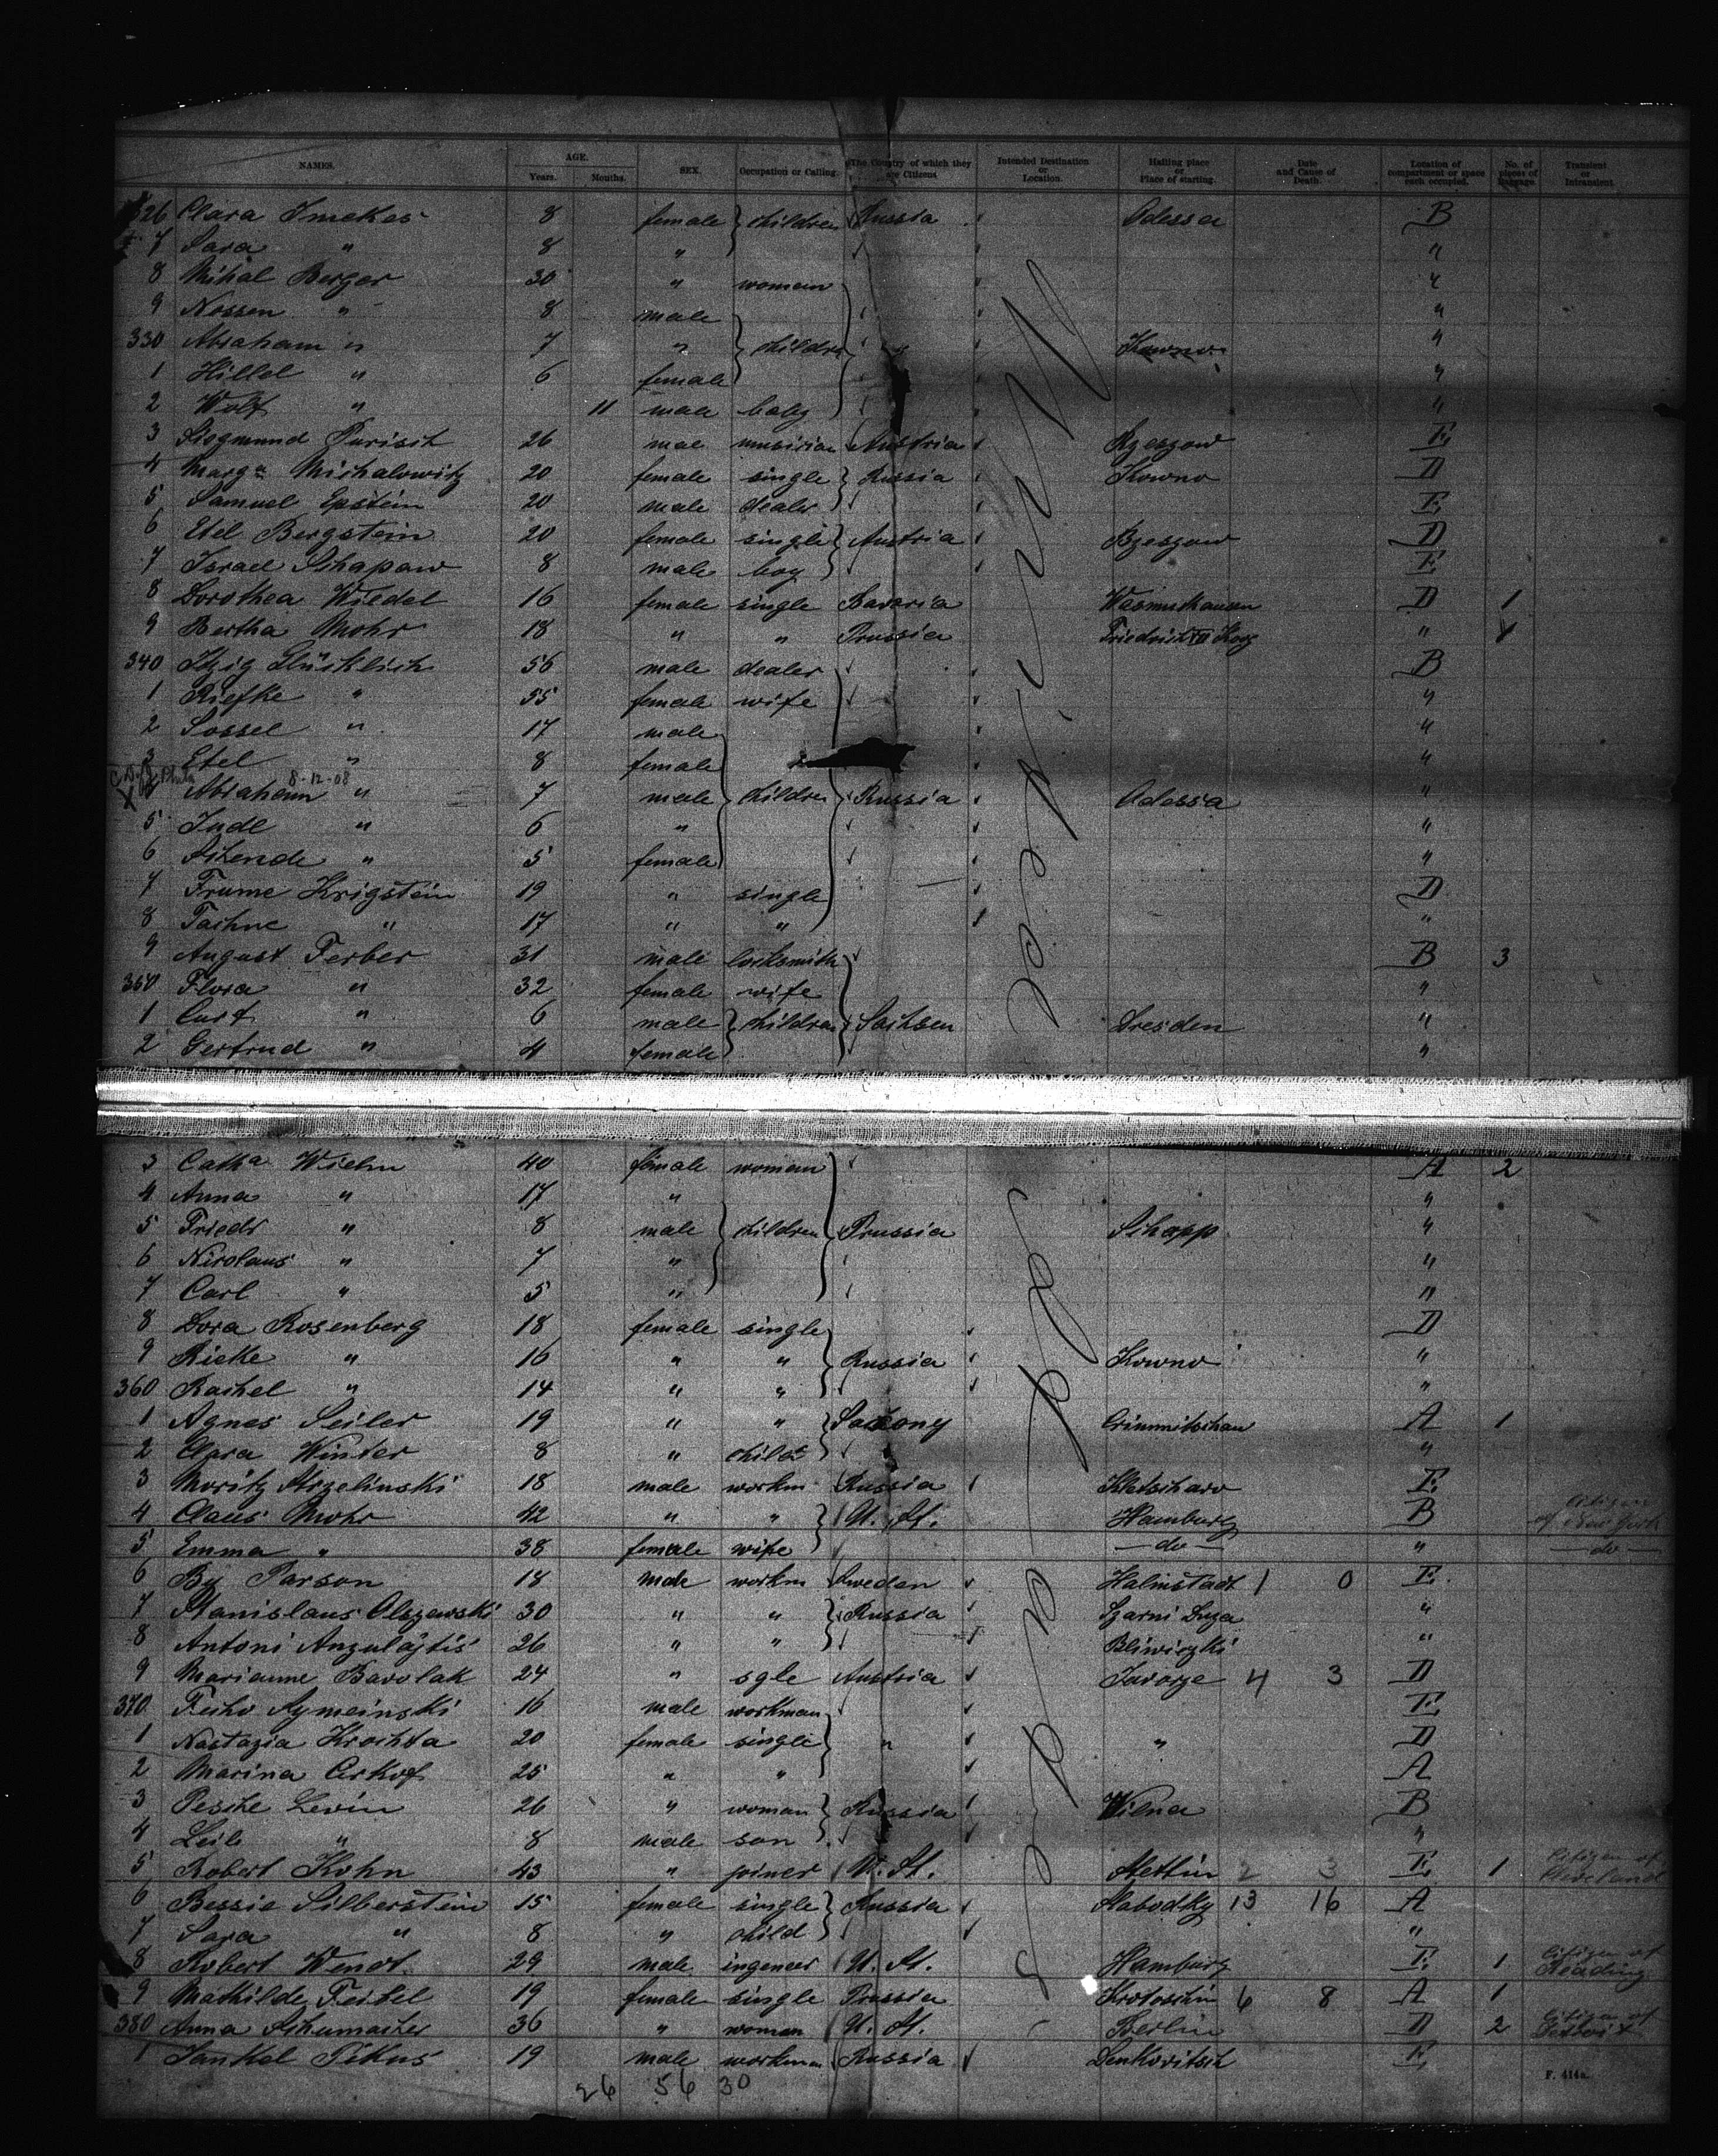 NAMES. AGE. Years. Months. SEX. Occupation or Calling. The Country of which they are Citizens Intended Destination or Location. Hailing place or Place of starting. Date and Cause of Death. Location of compartment or space each occupied. No. of pieces of Baggage. Transient or Intransient.
326 Clara 8 female children Russia Odessa B
7 Sara " 8 "  "
8 Mihal Berger 30 " woman "
9 Nossen " 8 male "
330 Abraham " 7 " children Kowno "
1 Hillel " 6 female "
2 Wolf " 11 male baby "
3 Siegmund 26 male musician Austria Rzeszow E
4 Marga Michalowitz 20 female single Russia Kowno D
5 Samuel Epstein 20 male dealer E
6 Etel Bergstein 20 female single Austria Rzeszow D
7 Israel 8 male boy E
8 Dorothea Wiedel 16 female single Bavaria D 1
9 Bertha Mohr 18 " " Prussia "
340 Itzig Glücklich 56 male dealer B
1 Riefke " 55 female wife "
2 Sossel " 17 male "
3 Etel " 8 female "
8-12-08
4 Abraham " 7 male children Russia Odessa "
5 Judl " 6 " "
6 " 5 female "
7 Frume Krigstein 19 " single D
8 " 17 " " "
9 August Ferber 31 male locksmith B 3
350 Flora " 32 female wife "
1 Curt " 6 male children Sachsen Dresden "
2 Gertrud " 4 female "
3 Catha Wiehn 40 female woman A 2
4 Anna " 17 " "
5 Friedr " 8 male children Prussia "
6 Nicolaus " 7 " "
7 Carl " 5 " "
8 Dora Rosenberg 18 female single D
9 Rieke " 16 " " Russia Kowno "
360 Rachel " 14 " " "
1 Agnes Seiler 19 " " Saxony Crimmitschau A 1
2 Clara Winter 8 " child "
3 Moritz Strzelinski 18 male workm Russia E
4 Claus Mohr 42 " " U. St. Hamburg B citizen of New York
5 Emma " 38 female wife — do — " — do —
6 Parson 18 male workm Sweden Halmstadt 1 0 E
7 Stanislaus Olszewski 30 " " Russia "
8 Antoni 26 " " "
9 Marianne Bavolak 24 " sgle Austria 4 3 D
370 16 male workman E
1 Nastazia 20 female single " " D
2 Marina 25 " " A
3 Pesche Levin 26 " woman Russia Wilna B
4 Leib " 8 male son "
5 Robert Kohn 43 " joiner U. St. Stettin 2 3 E 1 Citizen of Cleveland
6 Bessie Silberstein 15 female single Russia Slabodky 13 16 A
7 Sara " 8 " child "
8 Robert Wendt 29 male ingeneer U. St. Hamburg E 1 Citizen of Reading
9 Mathilde Feibel 19 female single Prussia Krotoschin 6 8 A 1
380 Anna Schumacher 36 " woman U. St. Berlin D 2 Citizen of Detroit
1 Jankel Pikus 19 male workman Russia E
26 56 30
F. 414a.